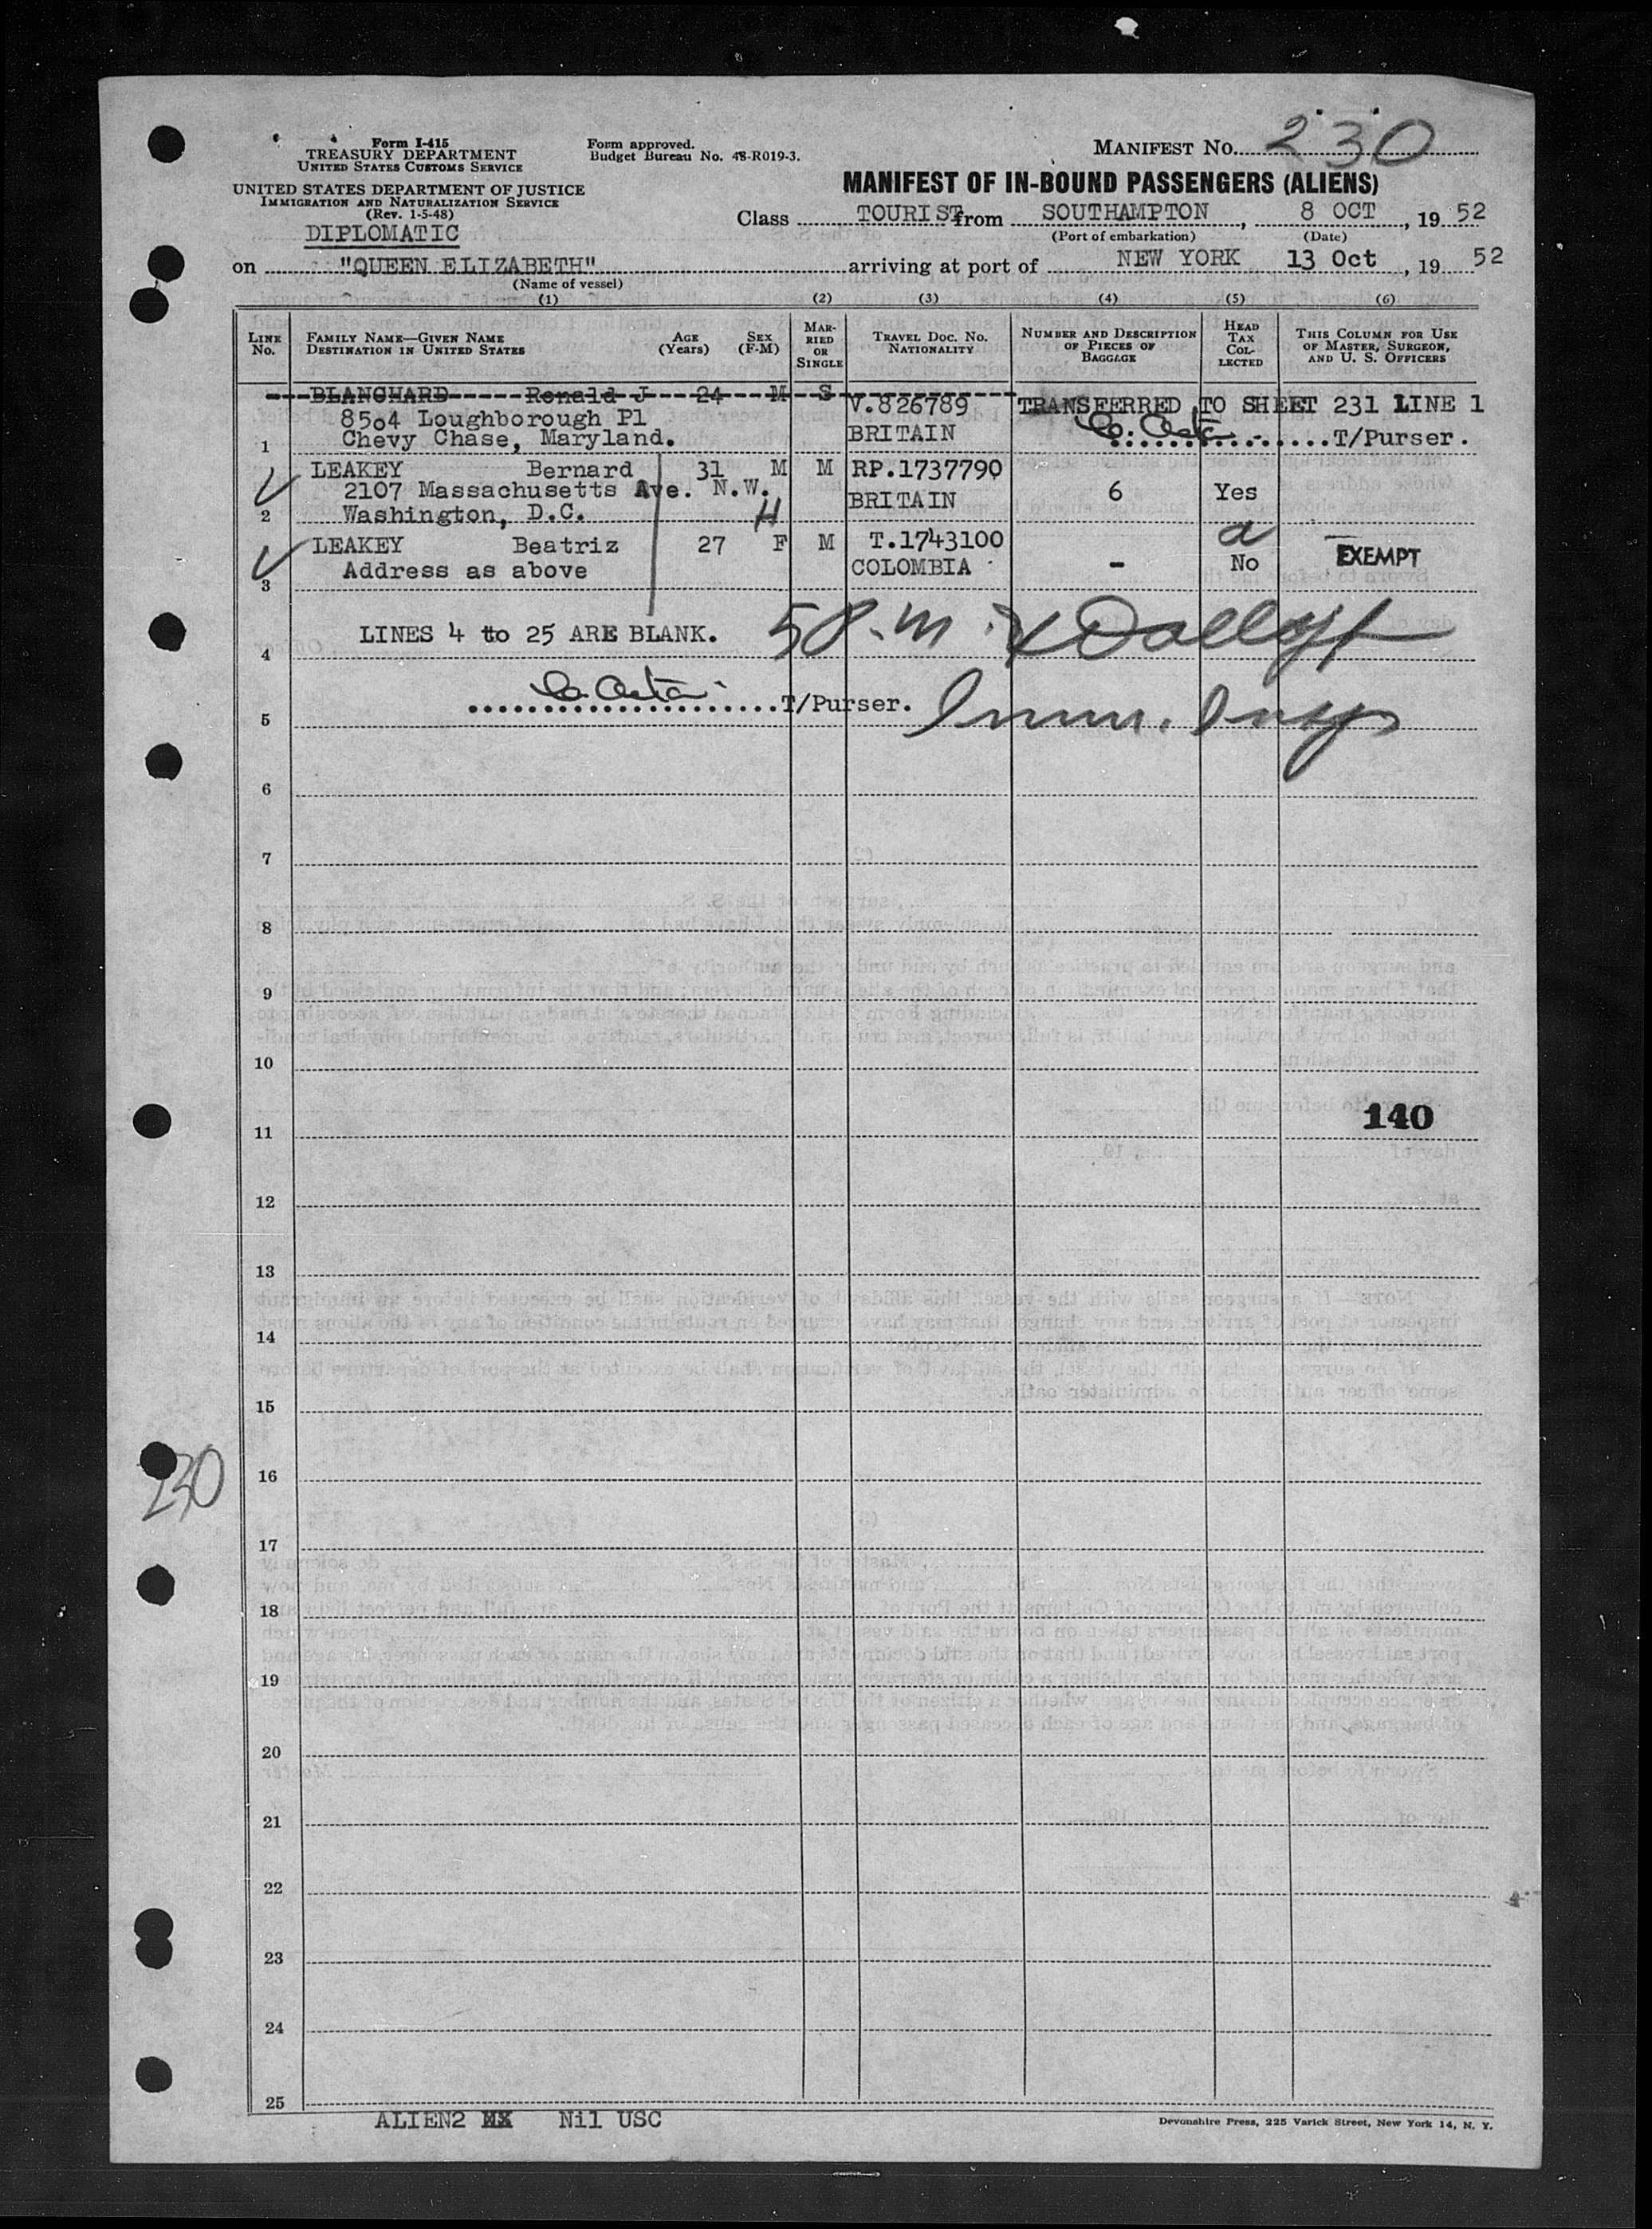 Form I-415
TREASURY DEPARTMENT
UNITED STATES CUSTOMS SERVICE
UNITED STATES DEPARTMENT OF JUSTICE
IMMIGRATION AND NATURALIZATION SERVICE
(Rev. 1-5-48)
DIPLOMATIC
Form approved.
Budget Bureau No. 43-R019-3.
MANIFEST NO. 230
MANIFEST OF IN-BOUND PASSENGERS (ALIENS)
Class TOURIST from SOUTHAMPTON, 8 OCT, 19 52
(Port of embarkation) (Date)
on "QUEEN ELIZABETH" arriving at port of NEW YORK 13 Oct, 19 52
(Name of vessel)
(1) (2) (3) (4) (5) (6)
LINE NO.
FAMILY NAME—GIVEN NAME
DESTINATION IN UNITED STATES
AGE (Years)
SEX (F-M)
MARRIED OR SINGLE
TRAVEL DOC. NO. NATIONALITY
NUMBER AND DESCRIPTION OF PIECES OF BAGGAGE
HEAD TAX COLLECTED
THIS COLUMN FOR USE OF MASTER, SURGEON, AND U. S. OFFICERS
BLANCHARD Ronald J 24 M S V.826789 TRANSFERRED TO SHEET 231 LINE 1
8504 Loughborough Pl
1 Chevy Chase, Maryland. BRITAIN T/Purser.
LEAKEY Bernard 31 M M RP.1737790
2107 Massachusetts Ave. N.W. BRITAIN 6 Yes
2 Washington, D.C. H
LEAKEY Beatriz 27 F M T.1743100 a
3 Address as above COLOMBIA - No EXEMPT
4 LINES 4 to 25 ARE BLANK.
5 T/Purser. Imm. Insp
6
7
8
9
10
11 140
12
13
14
15
16
230
17
18
19
20
21
22
23
24
25
ALIEN2 Nil USC
Devonshire Press, 225 Varick Street, New York 14, N. Y.